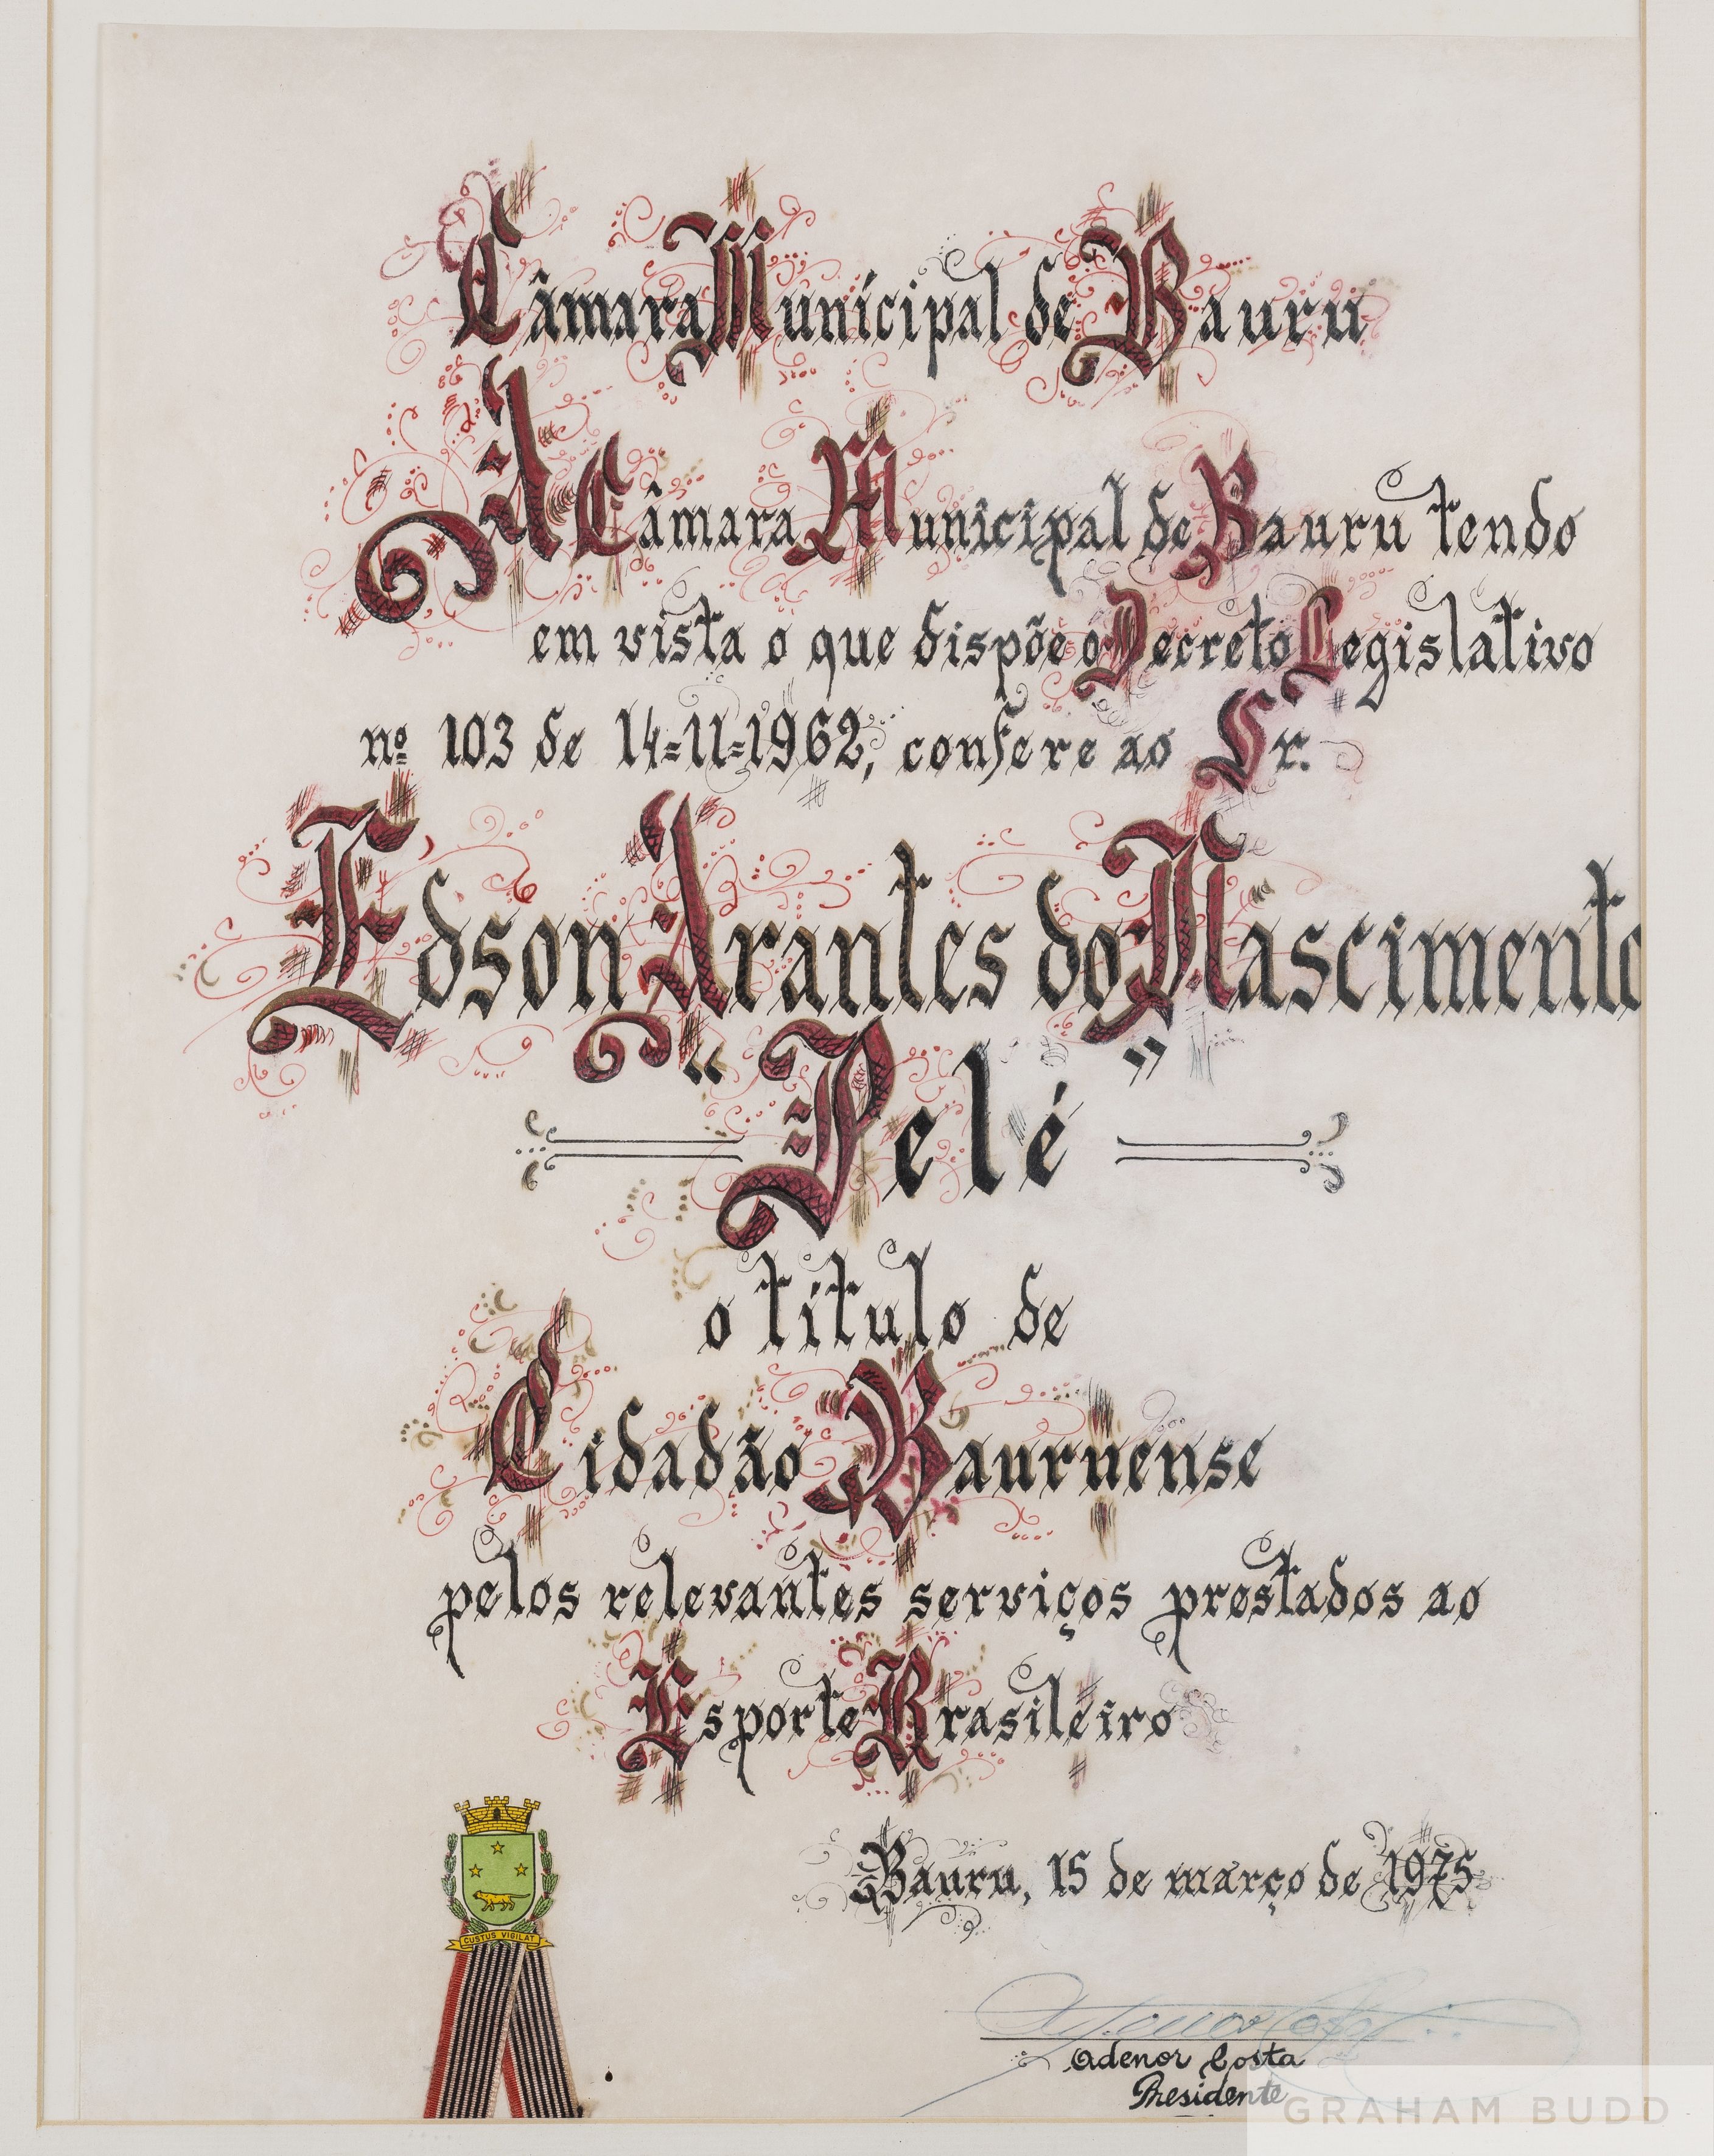 Câmara Municipal de Bauru
A Câmara Municipal de Bauru tendo
em vista o que dispõe o Decreto Legislativo
nº 103 de 14=11=1962, confere ao Sr.
Edson Arantes do Nascimento
"Pelé"
o título de
Cidadão Bauruense
pelos relevantes serviços prestados ao
Esporte Brasileiro
Bauru, 15 de março de 1975
CUSTUS VIGILAT
Adenor Costa
Presidente
GRAHAM BUDD